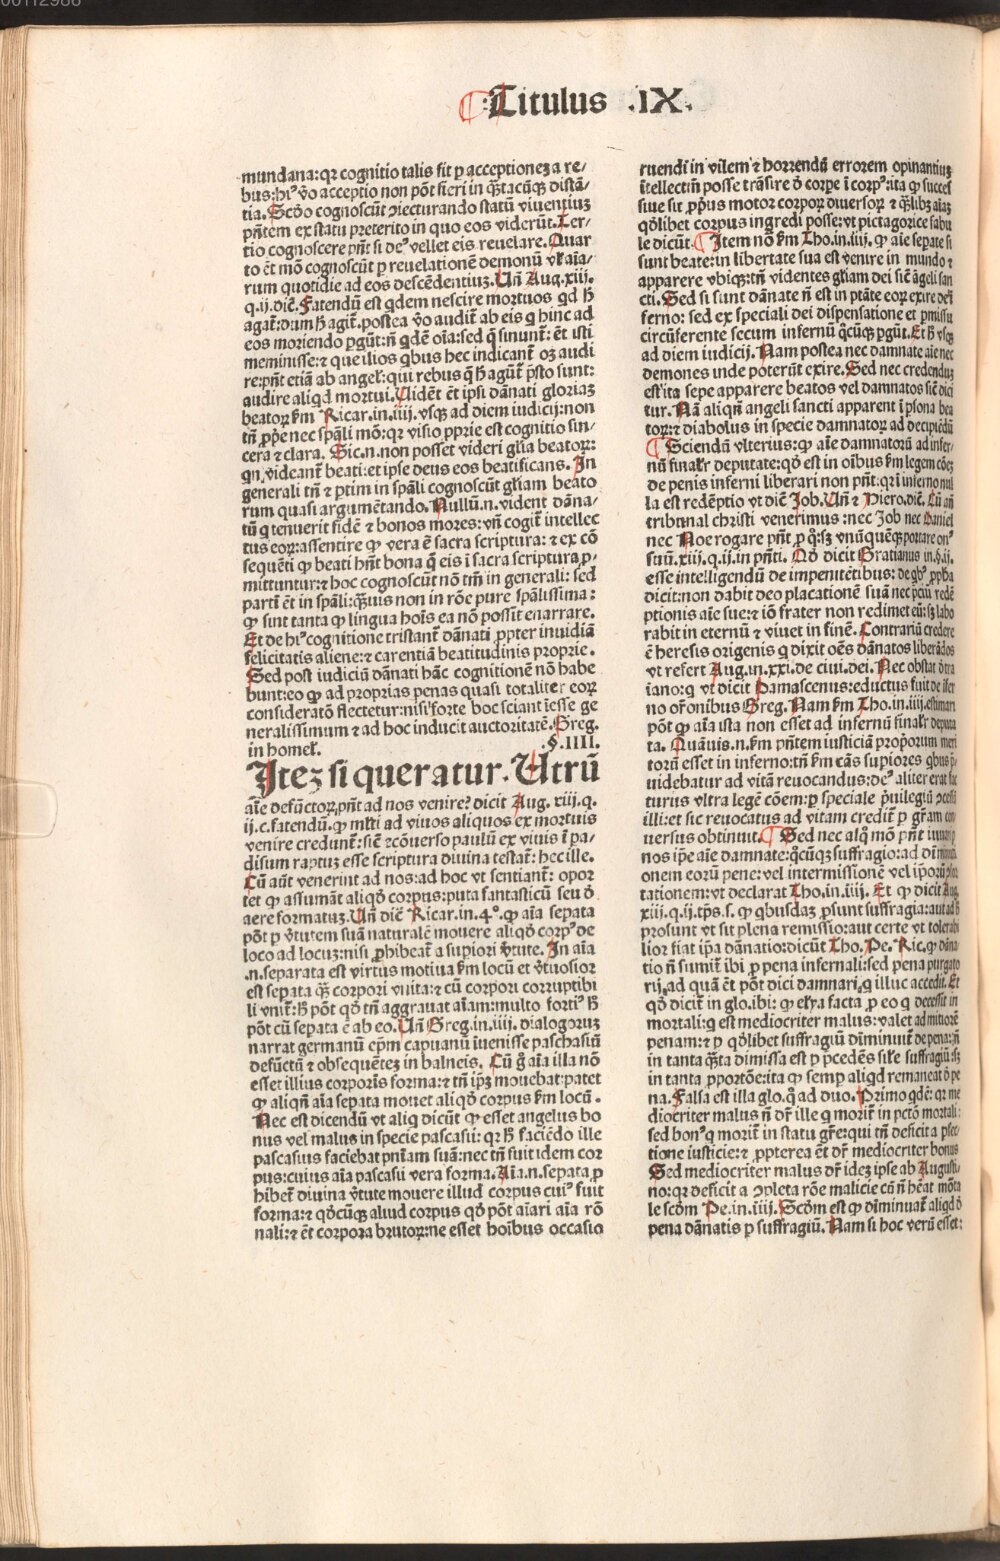 00112986
¶ Titulus .IX.
mundana: qꝛ cognitio talis fit ꝑ acceptionez a re-
bus: hiꝰ ṽo acceptio non põt fieri in q̃stacũq̃ distã-
tia. Scd̃o cognoscũt ꝯiecturando statũ viuentiuz
pñtem ex statu preterito in quo eos viderũt. Ter-
tio cognoscere pñt si deꝰ vellet eis reuelare. Quar
to ẽt mõ cognoscũt ꝑ reuelationẽ demonũ vł aĩa-
rum quotidie ad eos descẽdentiuz. Uñ Aug. xiij.
q. ij. dič. Fatendũ est q̇dem nescire mortuos qd h̃
agat̃: dum h̃ agit̃. postea ṽo audiũt ab eis q hinc ad
eos moriendo ꝑgũt: ñ q̇dẽ oĩa: sed q̃ sinunt̃: ẽt isti
meminisse: ⁊ que ilios qbus hec indicant̃ oꝫ audi
re: pñt etiã ab angeł: qui rebus q̃ h̃ agũt̃ p̃sto sunt:
audire aliqd mortui. Uidẽt ẽt ipsi dãnati gloriaz
beatoꝝ ẜm Ricar. in. iiij. vsqꝫ ad diem iudicij: non
tñ ꝓp̃e nec sp̃ali mõ: qꝛ visio ꝓprie est cognitio sin-
cera ⁊ clara. Sic. n. non posset videri gl̃ia beatoꝝ:
qn videant̃ beati: et ipse deus eos beatificans. In
generali tñ ⁊ ꝑtim in sp̃ali cognoscũt gl̃iam beato
rum quasi argumẽtando. Nullũ. n. vident dãna-
tũ q tenuerit fidẽ ⁊ bonos mores: vñ cogit̃ intellec
tus eoꝝ: assentire ꝙ vera ẽ sacra scriptura: ⁊ ex cõ
sequẽti ꝙ beati hñt bona q̃ eis ĩ sacra scriptura ꝓ-
mittuntur: ⁊ hoc cognoscũt nõ tm̃ in generali: sed
parti ẽt in sp̃ali: q̃uis non in rõe pure sp̃alissima:
ꝙ sunt tanta ꝙ lingua hoĩs ea nõ possit enarrare.
Et de hiꝰ cognitione tristant̃ dãnati ꝓpter inuidiã
felicitatis aliene: ⁊ carentiã beatitudinis proprie.
Sed post iudiciũ dãnati hãc cognitionẽ nõ habe
bunt: eo ꝙ ad proprias penas quasi totaliter eoꝝ
consideratõ flectetur: nisi forte hoc sciant ĩesse ge
neralissimum ⁊ ad hoc inducit auctoritatẽ. Greg.
in homeł. .§. IIII.
Itez si queratur. Utrũ
aĩe defũctoꝝ pñt ad nos venire? dicit Aug. xiij. q.
ij. c. fatendũ. ꝙ ml̃ti ad viuos aliquos ex mortuis
venire credunt̃: sic̃ ⁊ cõuerso paulũ ex viuis ĩ pa-
disum raptuꝫ esse scriptura diuina testat̃: hec ille.
Cũ aũt venerint ad nos: ad hoc vt sentiant̃: opor
tet ꝙ assumãt aliqd̃ corpus: puta fantasticũ seu d̃
aere formatuz. Uñ dič Ricar. in. 4º. ꝙ aĩa sepata
põt ꝑ ṽtutem suã naturalẽ mouere aliqd̃ corpꝰ de
loco ad locuz: nisi ꝓhibeat̃ a supiori ṽtute. In aĩa
.n. separata est virtus motiua ẜm locũ et ṽtuosior
est sepata q̃ corpori vnita: ⁊ cũ corpori corruptibi
li vnit̃: h̃ põt qd̃ tñ aggrauat aĩam: multo fortiꝰ h̃
põt cũ sepata ẽ ab eo. Uñ Greg. in. iiij. dialogoruz
narrat germanũ ep̃m capuanũ ĩuenisse paschasiũ
defũctũ ⁊ obsequẽtez in balneis. Cũ g̃ aĩa illa nõ
esset illius corporis forma: ⁊ tñ ip̃ꝫ mouebat: patet
ꝙ aliqñ aĩa sepata mouet aliqd̃ corpus ẜm locũ.
Nec est dicendũ vt aliq dicũt ꝙ esset angelus bo
nus vel malus in specie pascasii: qꝛ h̃ faciẽdo ille
pascasius faciebat pñiam suã: nec tñ fuit idem cor
pus: cuius aĩa pascasii vera forma. Aĩa. n. sepata ꝓ
hibet̃ diuina ṽtute mouere illud corpus cuiꝰ fuit
forma: ⁊ qd̃cũqꝫ aliud corpus qd̃ põt aĩari aĩa rõ
nali: ⁊ ẽt corpora brutoꝝ: ne esset hoĩbus occasio
ruendi in vilem ⁊ horrendũ errorem opinantiuꝫ
ĩtellectũ posse trãsire d̃ corpe ĩ corpꝰ: ita ꝙ succes
siue sit ꝓpꝰus motor corpoꝝ diuersoꝝ ⁊ q̃libꝫ aĩaꝫ
qd̃libet corpus ingredi posse: vt pictagorice fabu
le dicũt. ¶ Item nõ ẜm Tho. in. iiij. ꝙ aĩe sepate si
sunt beate: in libertate sua est venire in mundo ⁊
apparere vbiqꝫ: tñ videntes gl̃iam dei sic̃ ãgeli san
cti. Sed si sunt dãnate ñ est in ptãte eoꝝ exire de ĩ
ferno: sed ex speciali dei dispensatione et ꝑmissu
circũferente secum infernũ q̃cũqꝫ ꝑgũt. Et h̃ vsqꝫ
ad diem iudicij. Nam postea nec damnate aĩe nec
demones inde poterũt exire. Sed nec credenduꝫ
est ita sepe apparere beatos vel damnatos sic̃ dici
tur. Nã aliqñ angeli sancti apparent ĩ ꝑsona bea
toꝝ: ⁊ diabolus in specie damnatoꝝ ad decipiẽdũ
¶ Sciendũ vlterius: ꝙ aĩe damnatorũ ad infer-
nũ finalr̃ deputate: qd̃ est in oĩbus ẜm legem cõeꝫ
de penis inferni liberari non pñt: qꝛ ĩ inferno nul
la est redẽptio vt dič Job. Uñ ⁊ Hiero. dič. Cũ añ
tribunal christi venerimus: nec Job nec Daniel
nec Noe rogare pñt ꝓ q̃: sꝫ vnũquẽqꝫ portare onꝰ
suũ. xiij. q. ij. in pñti. Qd̃ dicit Gratianus in. §. ij.
esse intelligendũ de impenitẽtibus: de qbꝰ ꝓpha
dicit: non dabit deo placationẽ suã nec p̃ciũ redẽ
ptionis aĩe sue: ⁊ iõ frater non redimet eũ: sꝫ labo
rabit in eternũ ⁊ viuet in finẽ. Contrariũ credere
ẽ heresis origenis q dixit oẽs dãnatos liberãdos
vt refert Aug. in. xxi. de ciui. dei. Nec obstat d̃ tra
iano: q vt dicit Damascenus: eductus fuit de ĩfer
no or̃onibus Greg. Nam ẜm Tho. in. iiij. estimari
põt ꝙ aĩa ista non esset ad infernũ finalr̃ deputa
ta. Quãuis. n. ẜm pñtem iusticiã proporum meri
torũ esset in inferno: tñ ẜm cãs supiores qbus p̃
uidebatur ad vitã reuocandus: deꝰ aliter erat fac
turus vltra legẽ cõem: ꝓ speciale p̃uilegiũ ꝯcessũ
illi: et sic reuocatus ad vitam credit̃ ꝑ gr̃am con
uersus obtinuit. ¶ Sed nec alq̃ mõ pñt iuuari ꝑ
nos ip̃e aĩe damnate: q̃cũqꝫ suffragio: ad diminuti
onem eorũ pene: vel intermissionẽ vel ip̃orũ
tationem: vt declarat Tho. in. iiij. Et ꝙ dicit Aug.
xiij. q. ij. tp̃s. s. ꝙ qbusdaꝫ ꝓsunt suffragia: aut ad h̃
prosunt vt sit plena remissio: aut certe vt tolerabi
lior fiat ip̃a dãnatio: dicũt Tho. Pe. Ric. ꝙ dãna
tio ñ sumit̃ ibi ꝓ pena infernali: sed pena purgato
rij, ad quã ẽt põt dici damnari, q illuc accedit. Et
qd̃ dicit̃ in glo. ibi: ꝙ elỹa facta ꝓ eo q decessit in
mortali: q est mediocriter malus: valet ad mitiorẽ
penam: ⁊ ꝑ qd̃libet suffragiũ diminuit̃ de pena: ñ
in tanta q̃sta dimissa est ꝑ p̃cedẽs sil̃e suffragiũ: sꝫ
in tanta ꝓportõe: ita ꝙ semp aliqd remaneat d̃ pe
na. Falsa est illa glo. q̃ ad duo. Primo q̇dẽ: qꝛ me
diocriter malus ñ dr̃ ille q morit̃ in pctõ mortali:
sed bonꝰ q morit̃ in statu gr̃e: qui tñ deficit a ꝑfec
tione iusticie: ⁊ ꝓpterea ẽt dr̃ mediocriter bonus
Sed mediocriter malus dr̃ idez ipse ab Augusti-
no: qꝛ deficit a ꝯpleta rõe malicie cũ ñ hẽat mõta
le scd̃m Pe. in. iiij. Scd̃m est ꝙ diminuat̃ aliqd d̃
pena dãnatis ꝑ suffragiũ. Nam si hoc verũ esset: